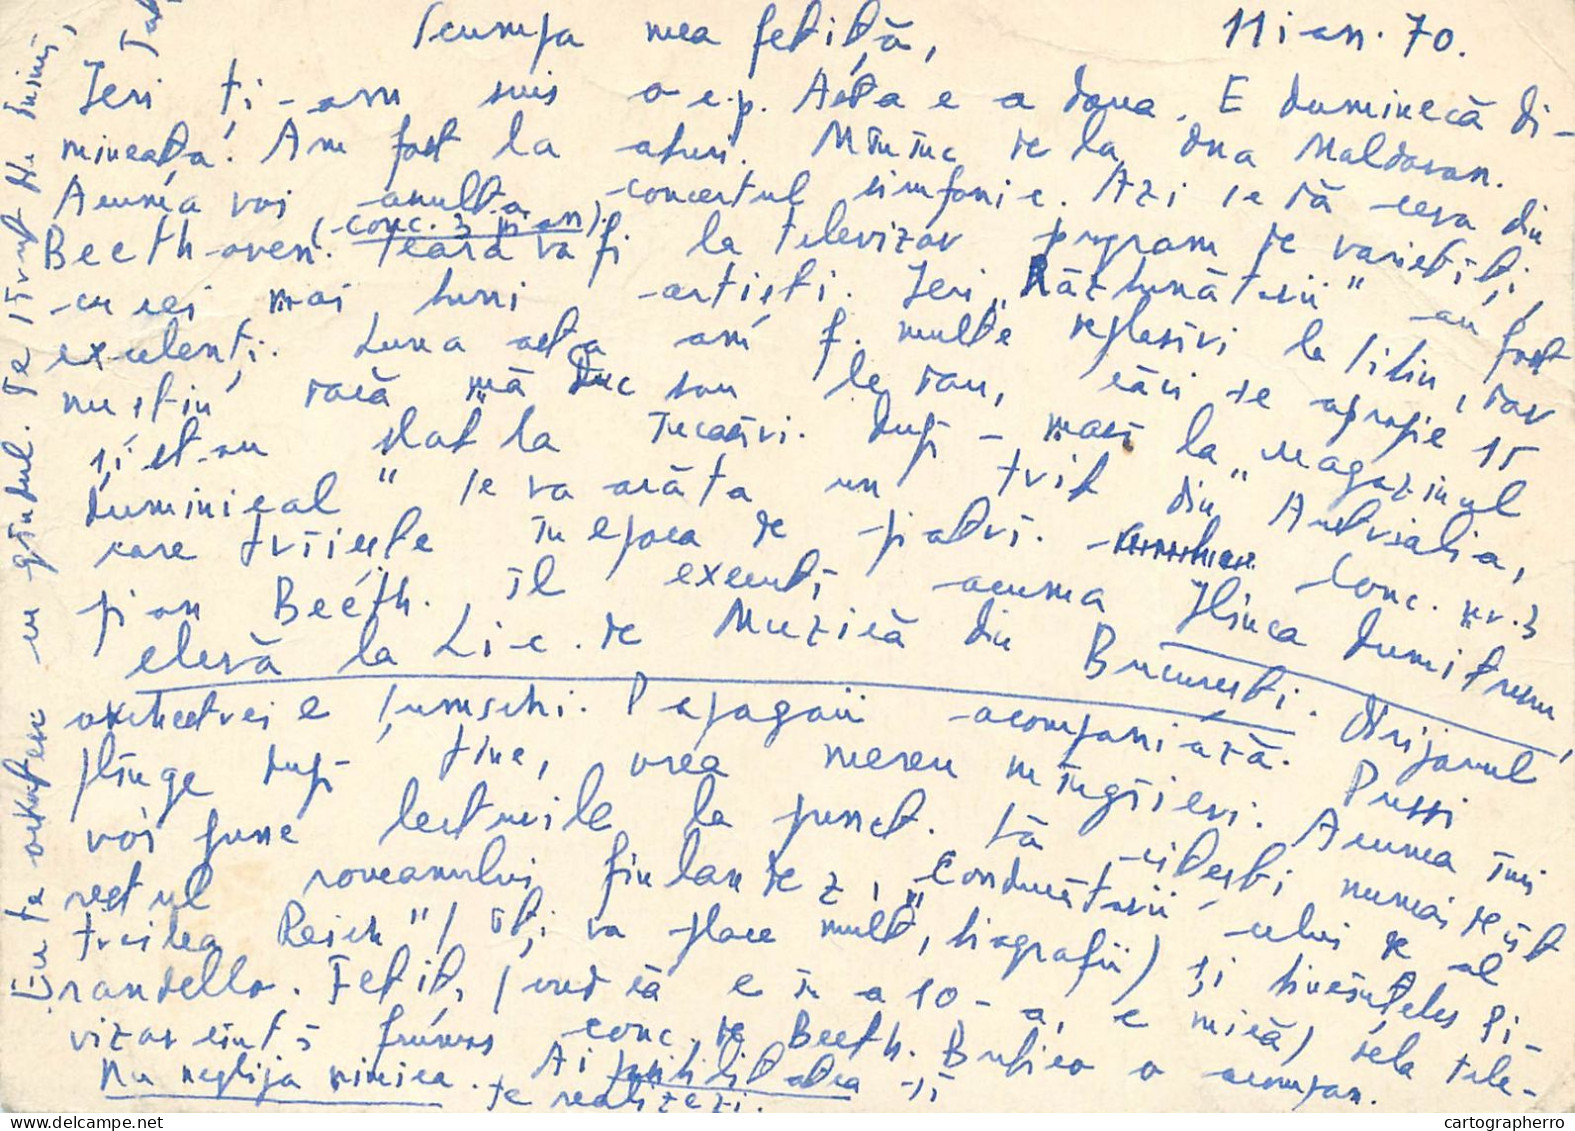 Scumpa mea fetiță, 11 ian. 70.
Ieri ți-am scris o c.p. Asta e a doua. E duminecă di-
mineața. Am fost la aburi. Mînînc de la dna Maldovan.
Acuma voi asculta concertul simfonic. Azi se dă ceva din
Beethoven. (conc. 3 pian). Seara va fi la televizor program de varietăți,
cu cei mai buni artiști. Ieri „Răzbunătorii" au fost
excelenți. Luna asta am f. multe deplasări la Sibiu, dar
nu știu dacă mă duc sau le dau, căci se apropie 15
și st-au stat la încasări. După-masă la „Magazinul
duminical" se va arăta un trib din Australia,
care trăiește în epoca de piatră. Conc. nr. 3
pian Beeth. îl execută acuma Ilinca Dumitrescu,
elevă la Lic. de Muzică din București. Dirijorul
orchestrei e Papagalii acompaniază. Pussi
plînge după tine, vrea mereu mîngîieri. Acuma îmi
voi pune lecturile la punct. Să citești numai decît
restul romanului finlandez, „Conducătorii celui de al
treilea Reich" (îți va place mult, biografii) și bineînțeles Pi-
randello. Fetiț, (cred că e în a 10-a, e mică) de la tele-
vizor cîntă frumos conc. de Beeth. Bufica o acompan.
Nu neglija nimica. Ai posibilitatea să
te realizezi.
Eu te aștept cu gîndul. Te sărut de inimă,
Tat
cartographerro